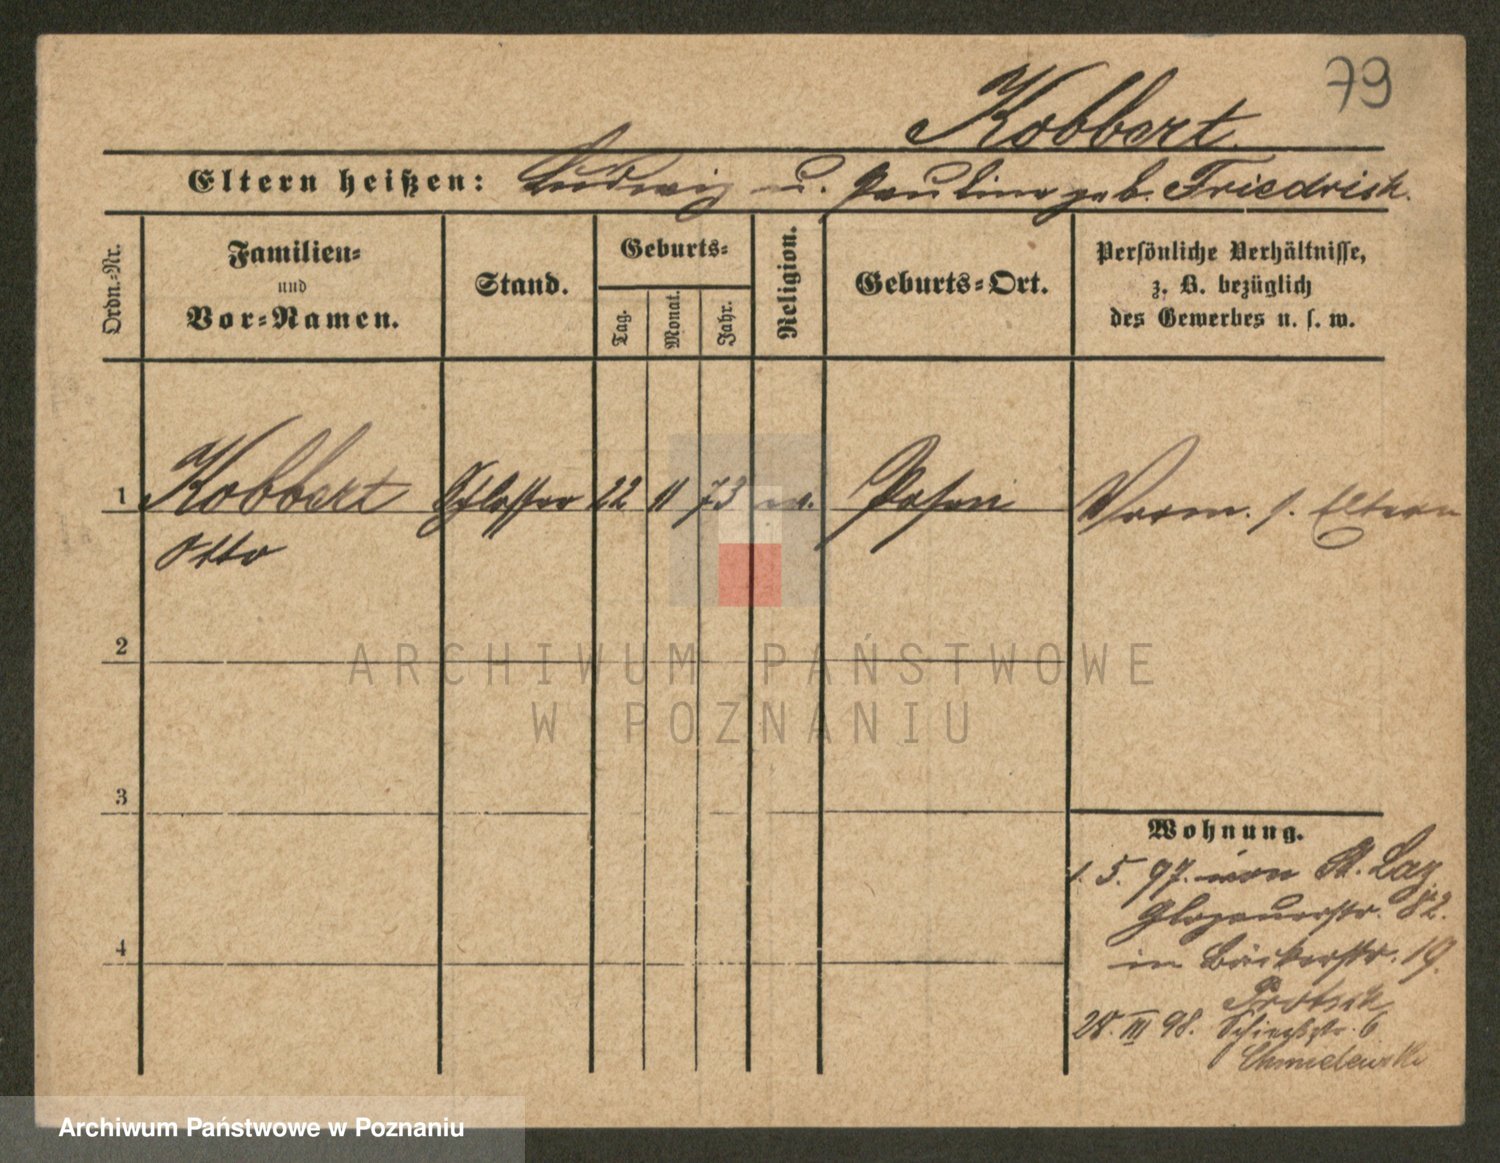 79
Kobbert
Eltern heißen: Ludwig u. Pauline geb. Friedrich.
Ordn.-Nr.
Familien-
und
Vor-Namen.
Stand.
Geburts-
Tag.
Monat.
Jahr.
Religion.
Geburts-Ort.
Persönliche Verhältnisse,
z. B. bezüglich
des Gewerbes u. s. w.
1 Kobbert Schlosser 22 11 73 ev. Posen Verm. s. Eltern
Otto
2
ARCHIWUM PAŃSTWOWE
W POZNANIU
3
Wohnung.
1. 5. 97. von St. Laz.
Glogauerstr. 82.
4
in Bäckerstr. 19.
28. III 98. Schießstr. 6
Chmelewski
Archiwum Państwowe w Poznaniu